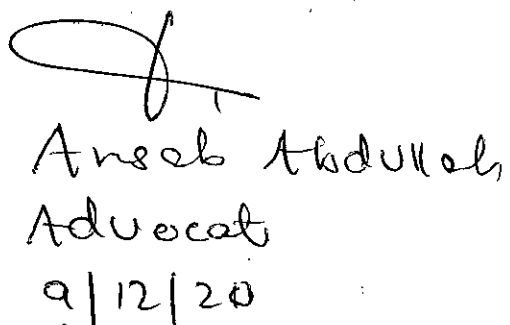 Ansab Abdullah
Advocate
9/12/20